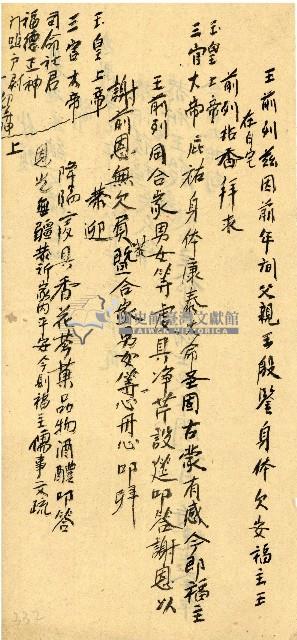 王前列茲因前年間父親王殷鑒身体欠安福主王
在自宅
前列指香拜求
玉皇上帝
三官大帝庇祐身体康泰命基固古蒙有感今即福主
王前列同合家男女等虔具净芹設筵叩答謝恩以
謝前恩無欠負暨合家男女等心丹心叩拜
恭迎
玉皇上帝
三官大帝
司命灶君
福德正神
門
户尉
神上
降臨
具香花茶菓品物酒醴叩答
恩光無疆恭祈家內平安今則福主
事文疏
國史館臺灣文獻館
TAIWAN HISTORICA
332